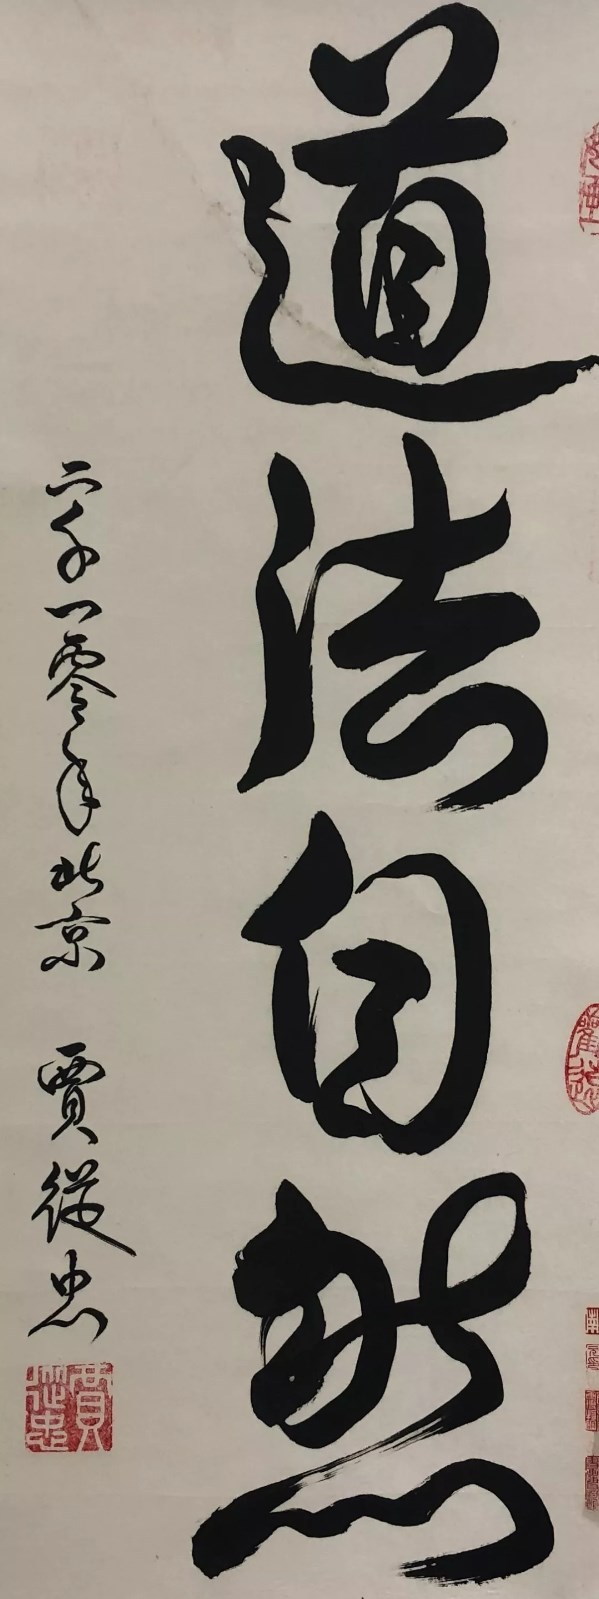 道法自然
二千一零年北京 賈從忠
賈從忠